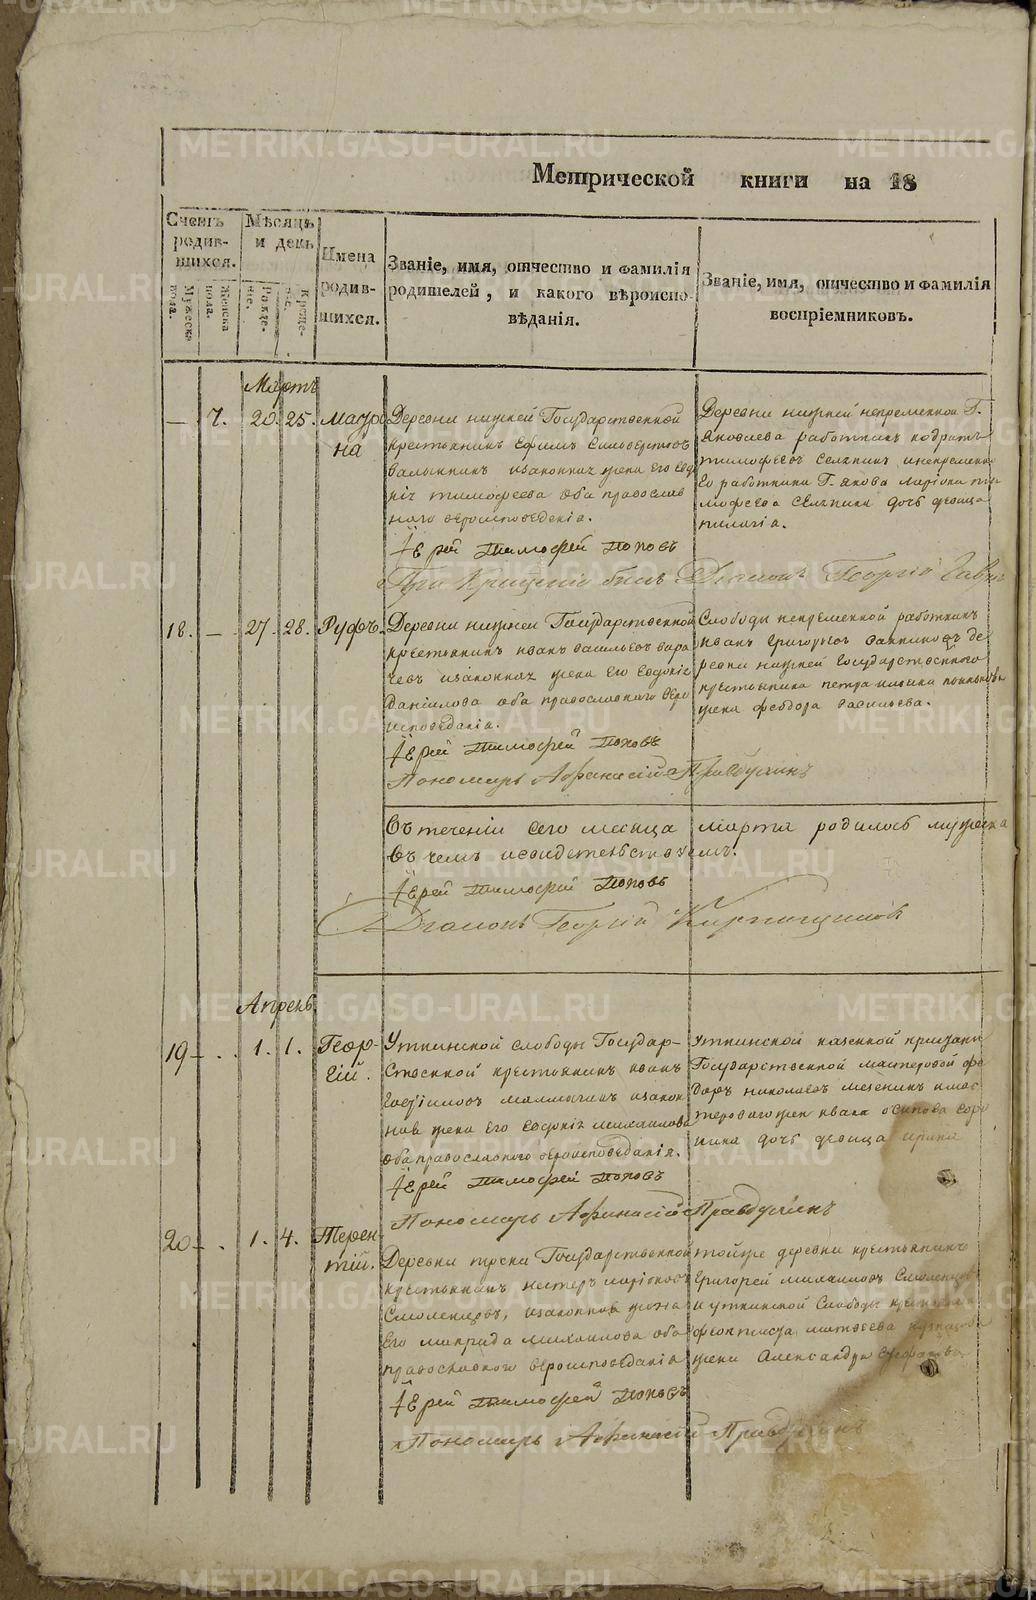 METRIKI.GASO-URAL.RU
Метрической книги на 18
Счетъ родив-шихся.
Мужеска пола.
Женска пола.
Мѣсяцъ и день
Рожде-ніе.
Креще-ніе.
Имена родив-шихся.
Званіе, имя, отчество и фамилія
родителей, и какого вѣроиспо-
вѣданія.
Званіе, имя, отчество и фамилія
воспріемниковъ.
Мартъ
— 7. 20. 25. Матро
на
Деревни нижней Государственной
крестьянинъ Ефимъ
изаконная жена его Евдо
кія тимофеева оба православ
наго вероисповеданія.
Іерей Тимофей Поповъ
Деревни нижней непременной Г.
Яковлева работникъ кодратъ
тимофеевъ инепременна
го работника Г. Якова Ларіона ти
мофеева дочь девица
пилагія.
При Крещеніи былъ Діаконъ Георгій
18. — 27. 28. Руфъ.
Деревни нижней Государственной
крестьянинъ иванъ васильевъ
изаконная жена его Евдокія
Даніилова оба православнаго веро
исповеданія.
Іерей Тимофей Поповъ
Пономарь Афанасій Правдухинъ
Слободы непременной работникъ
иванъ Григорьевъ де
ревни нижней Государственнаго
крестьянина петра
жена феодора васильева.
Въ теченіи сего месяца марта родилось мужеска
въ чемъ исвидетельствуемъ.
Іерей Тимофей Поповъ
Діаконъ Георгій Кирпищиковъ
Апрель
19 — . 1. 1. Геор-
гій.
Уткинской слободы Государ-
ственной крестьянинъ иванъ
изакон
ная жена его Евдокія михаилова
оба православного вероисповеданія.
Іерей Тимофей Поповъ
Пономарь Афанасій Правдухинъ
Уткинской казенной пристани
Государственной мастеровой фе
доръ николаевъ имас
тероваго ивана осипова
дочь девица ирина
20 — . 1. 4. Терен
тій.
Деревни Государственной
крестьянинъ нестеръ ларіоновъ
Смоленцовъ, изаконная жена
Его михаилова оба
православнаго вероисповеданія
Іерей Тимофей Поповъ
Пономарь Афанасій Правдухинъ
тойже деревни крестьянинъ
Григорей михаиловъ Смоленцовъ
и уткинской Слободы крестьянина
матвеева
жена Александра